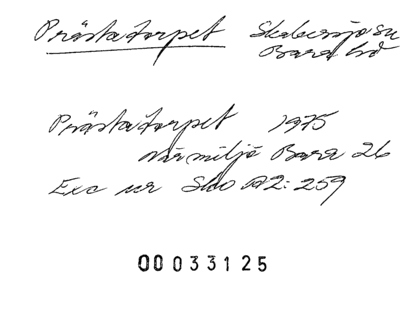 Prästatorpet Skabersjö sn
Bara hd
Prästatorpet 1975
närmiljö Bara 26
Exc ur Sko A2:259
00033125